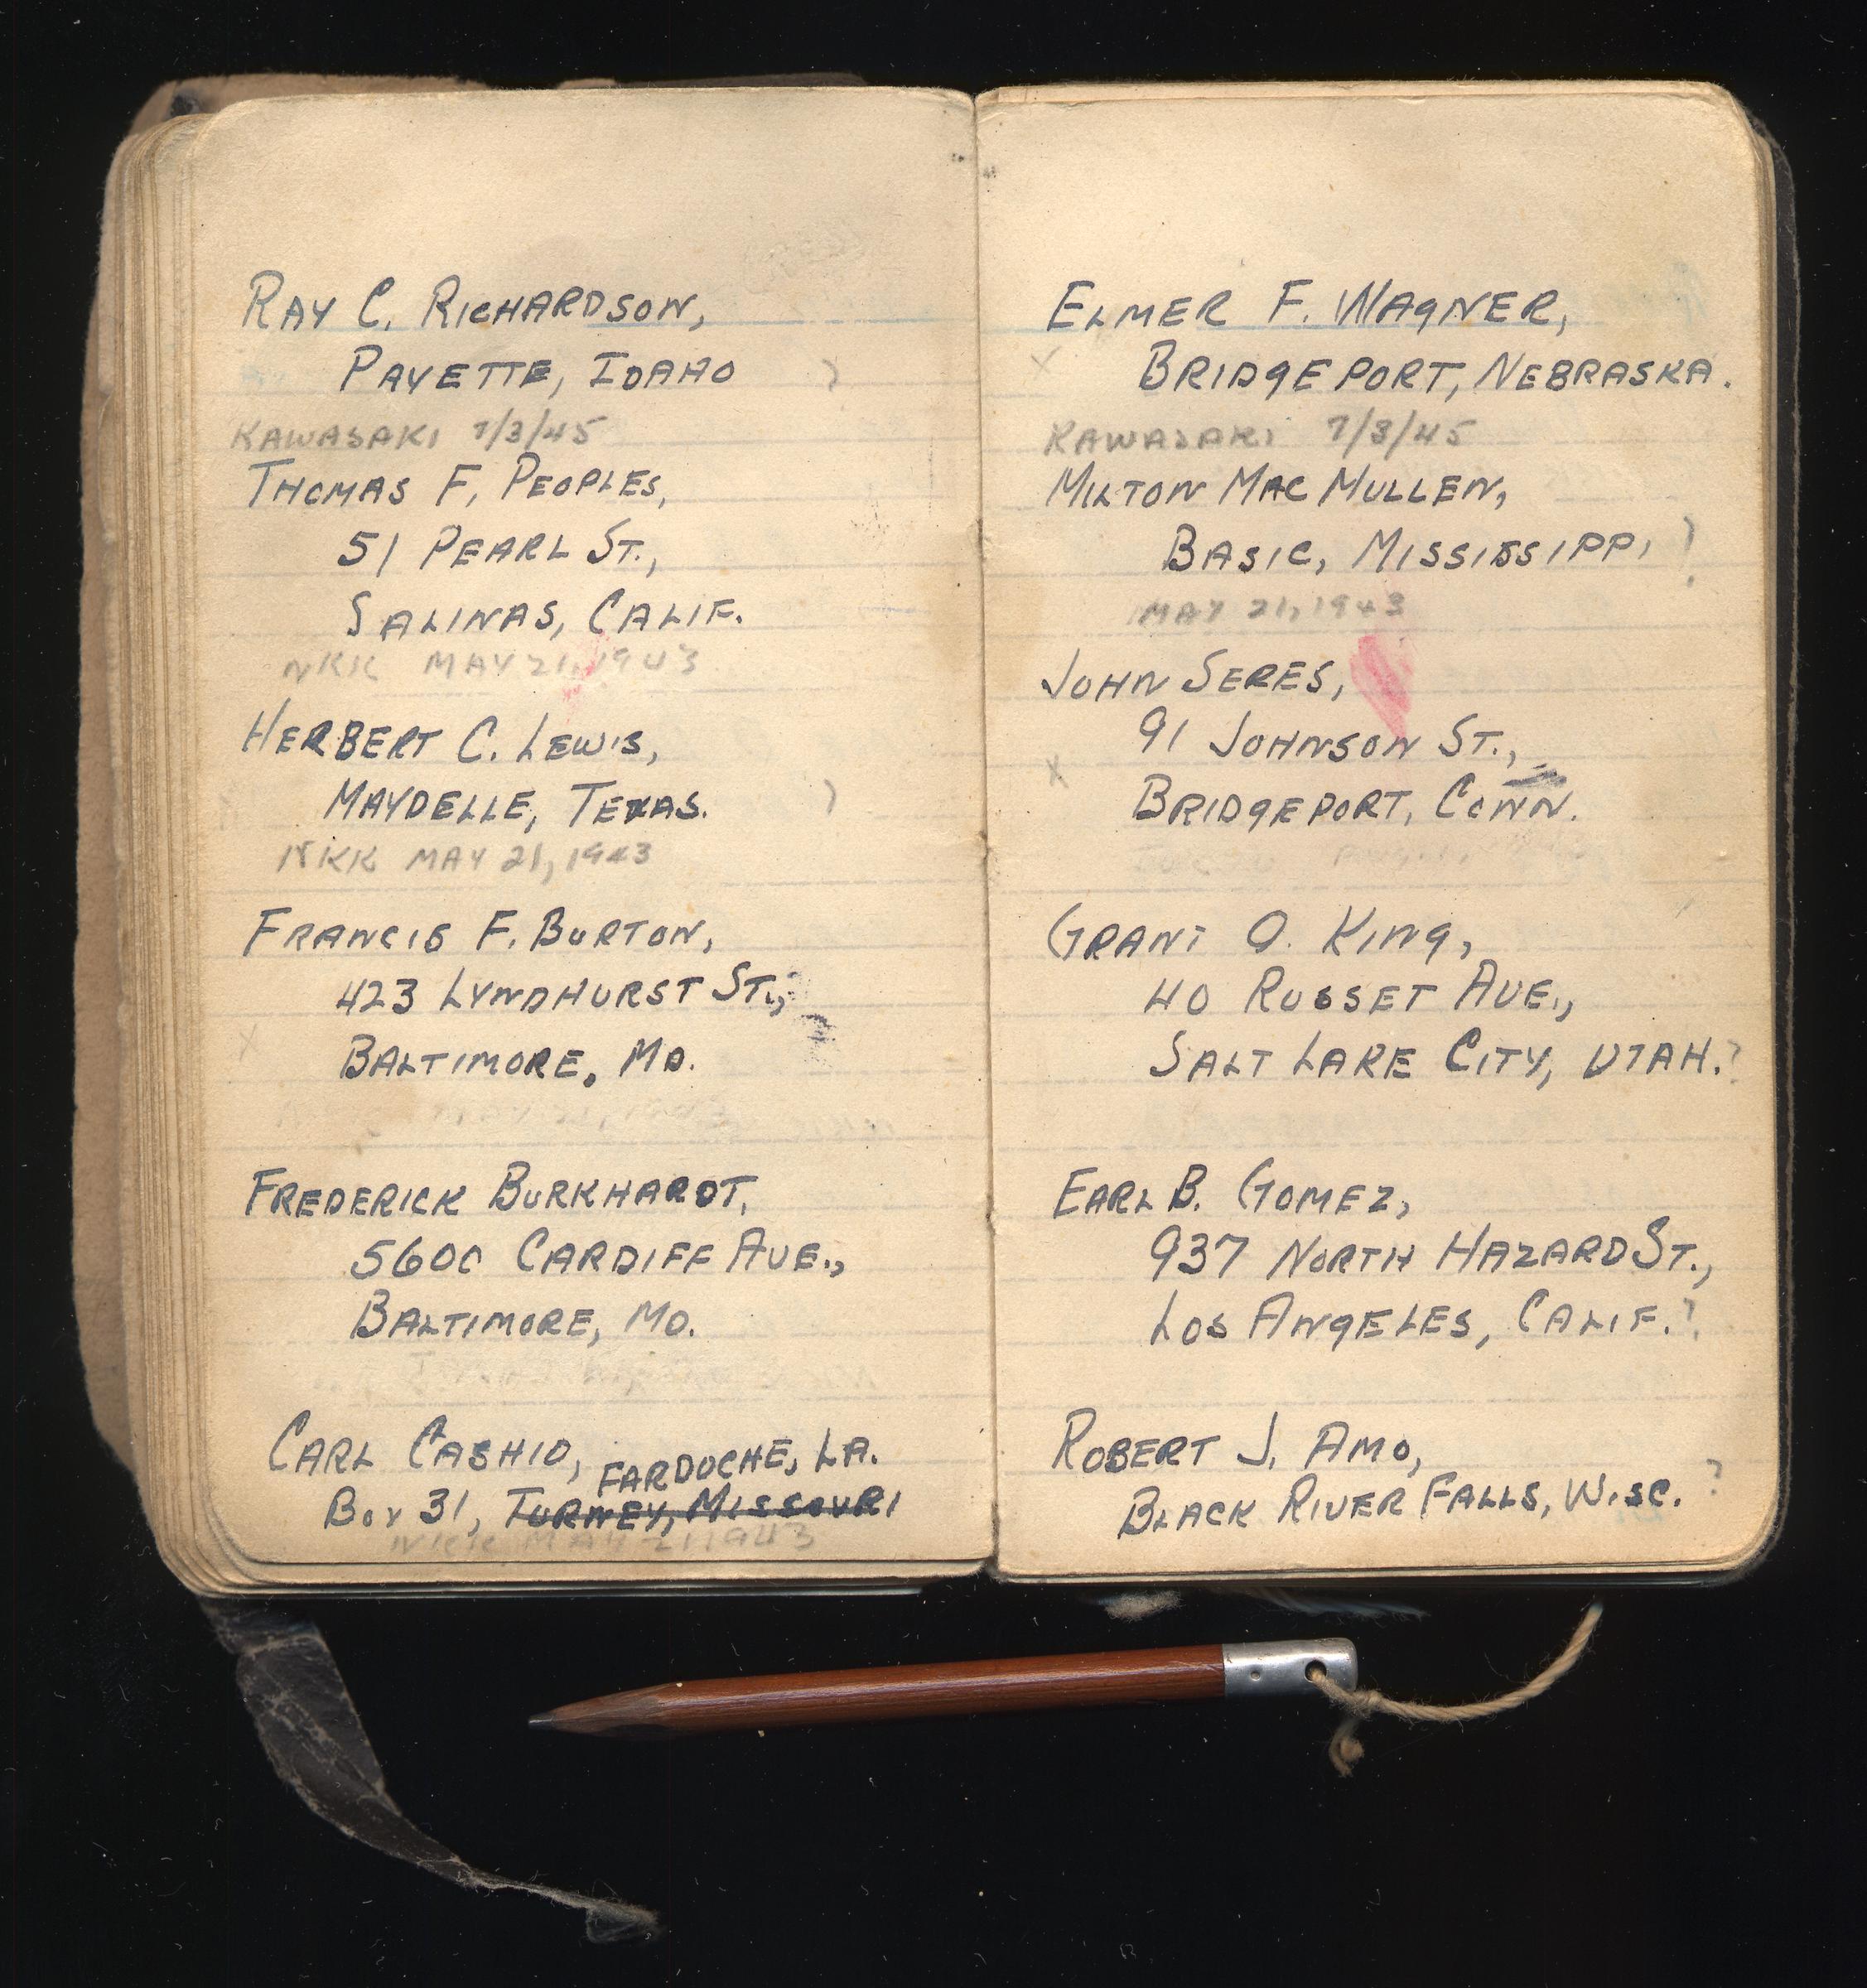 RAY C. RICHARDSON,
PAYETTE, IDAHO
KAWASAKI 7/3/45
THOMAS F. PEOPLES,
51 PEARL ST.,
SALINAS, CALIF.
NKK MAY 21, 1943
HERBERT C. LEWIS,
MAYDELLE, TEXAS.
NKK MAY 21, 1943
FRANCIS F. BURTON,
423 LYNDHURST ST.,
X
BALTIMORE, MD.
FREDERICK BURKHARDT,
5600 CARDIFF AVE.,
BALTIMORE, MD.
CARL CASHIO, FARDOCHE, LA.
BOX 31, TURNEY, MISSOURI
NKK MAY 21 1943
ELMER F. WAGNER,
X BRIDGEPORT, NEBRASKA.
KAWASAKI 7/3/45
MILTON MAC MULLEN,
BASIC, MISSISSIPPI ?
MAY 21, 1943
JOHN SERES,
91 JOHNSON ST.,
X BRIDGEPORT, CONN.
GRANT O. KING,
40 RUSSET AVE.,
SALT LAKE CITY, UTAH. ?
EARL B. GOMEZ,
937 NORTH HAZARD ST.,
LOS ANGELES, CALIF. ?
ROBERT J. AMO,
BLACK RIVER FALLS, WISC. ?